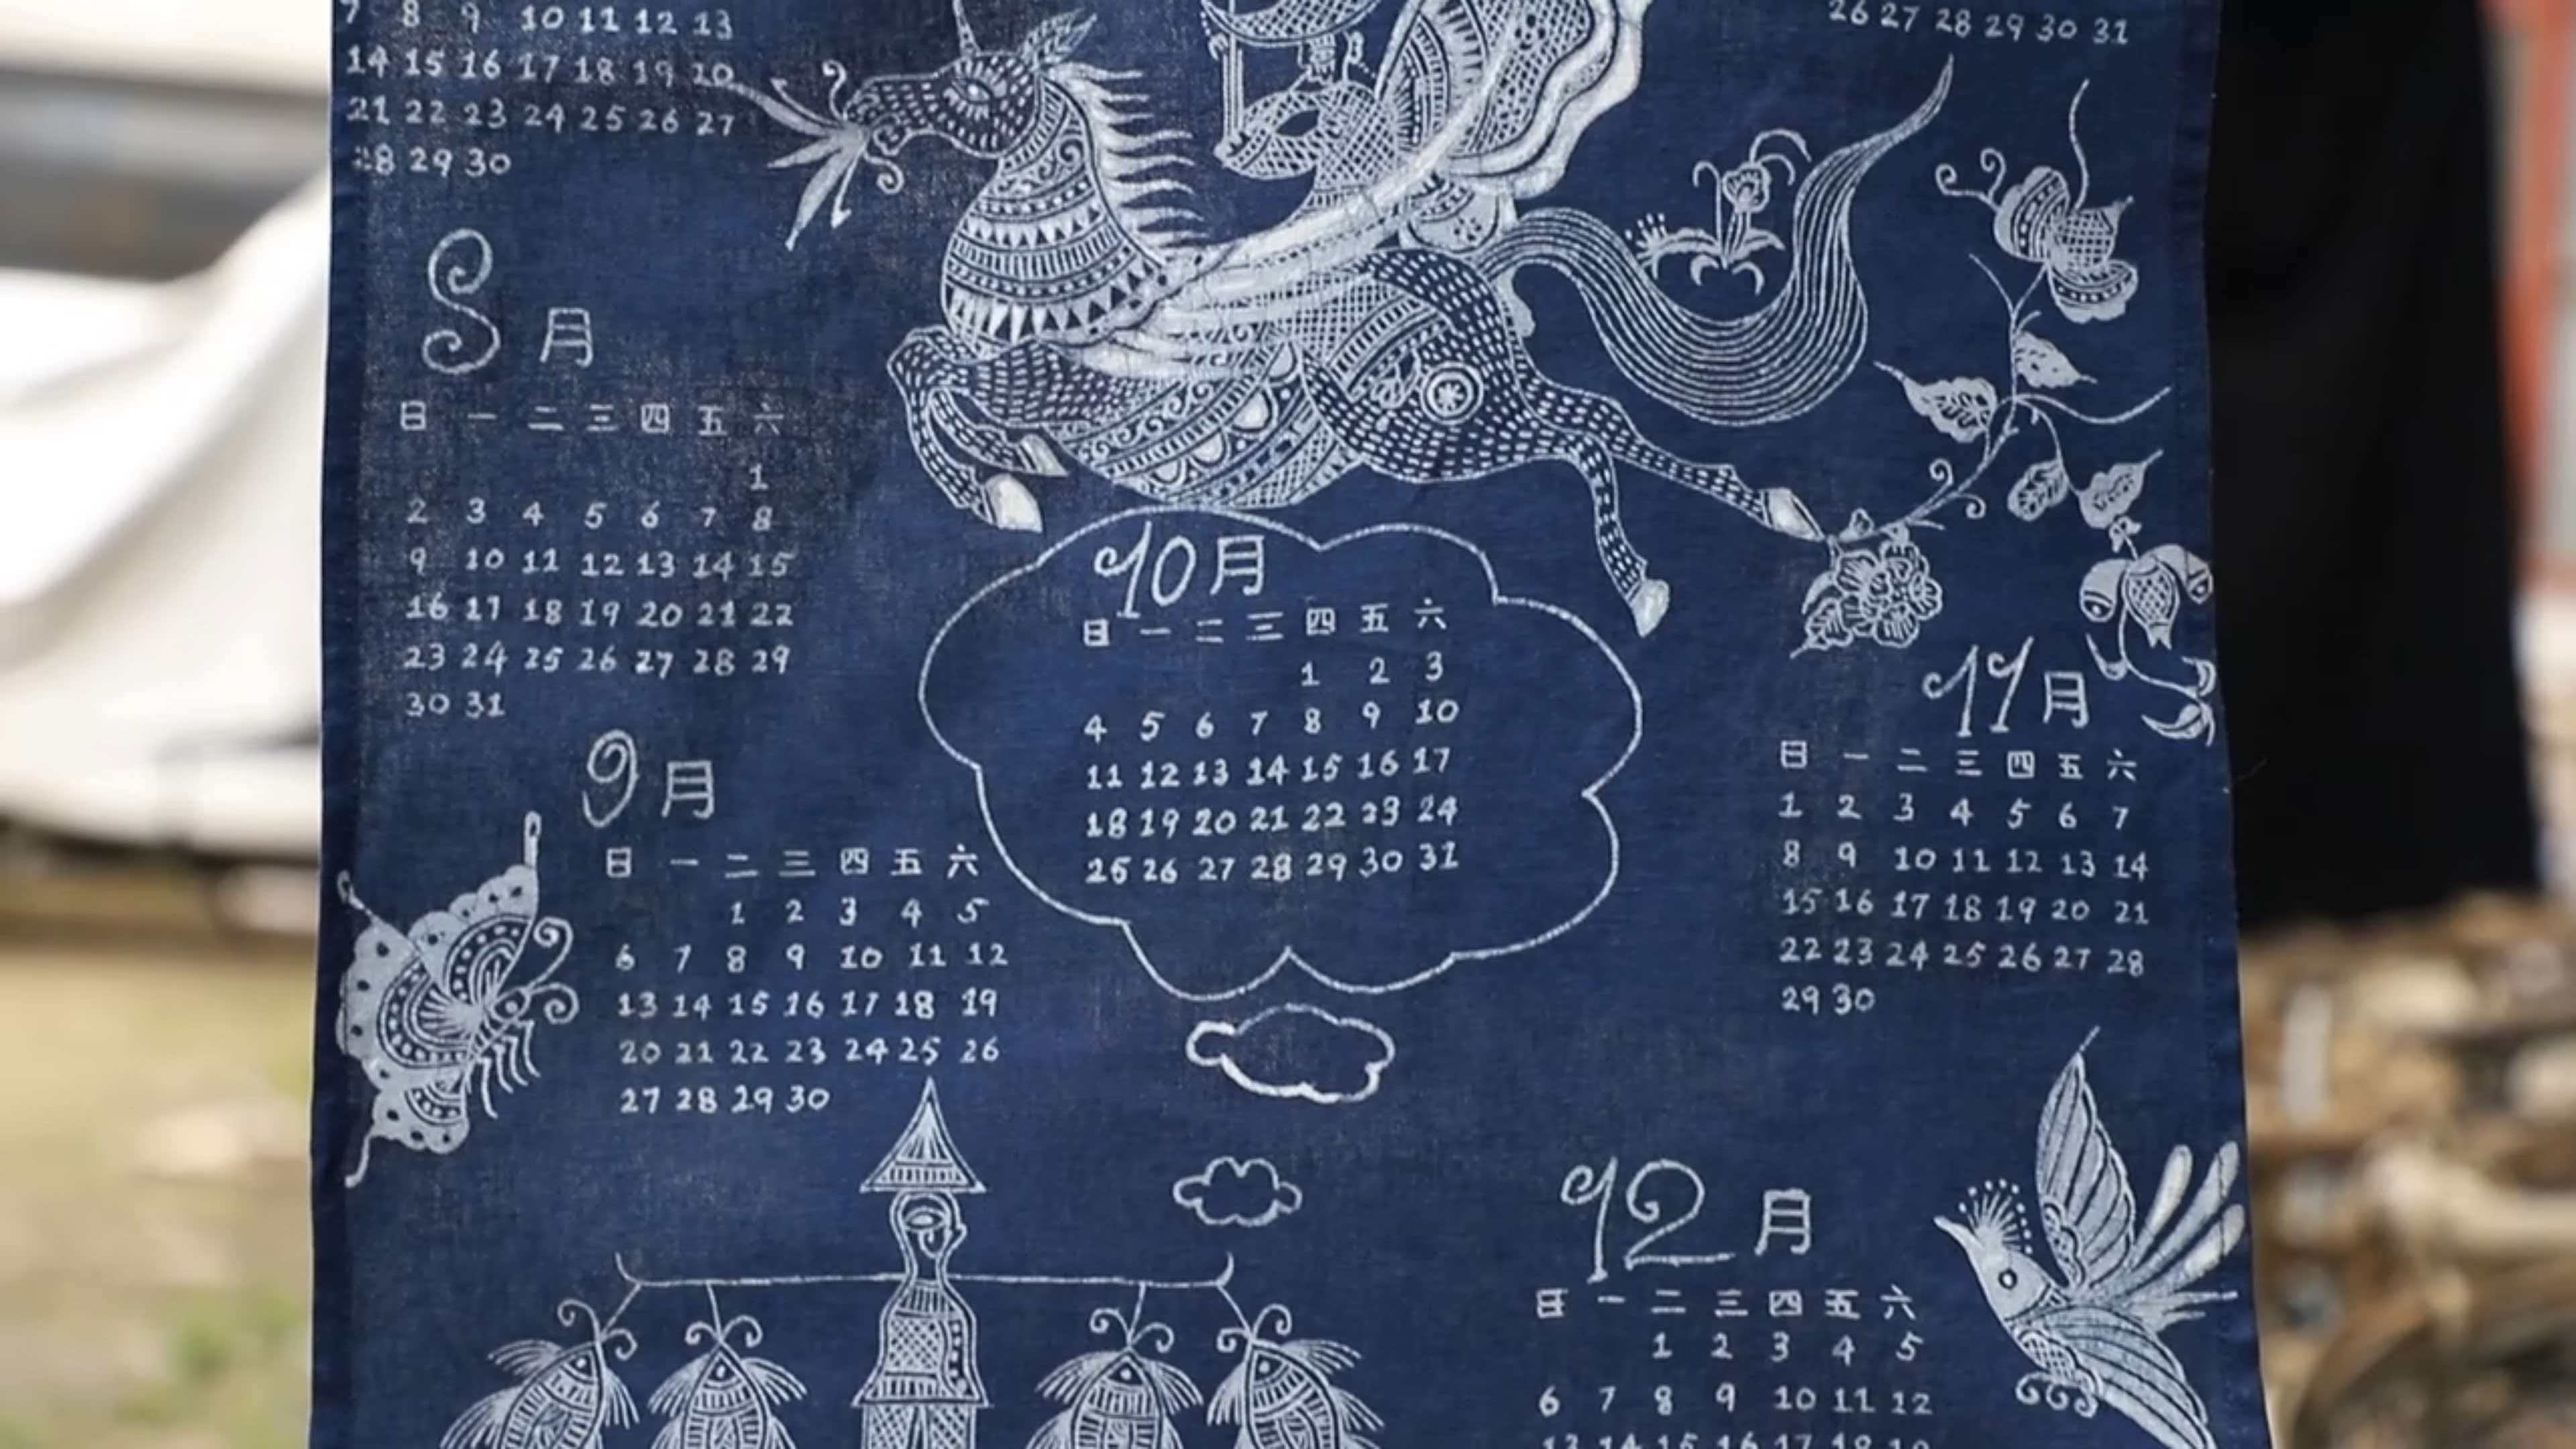 7 8 9 10 11 12 13
14 15 16 17 18 19 20
21 22 23 24 25 26 27
28 29 30
26 27 28 29 30 31
8月
日 一 二 三 四 五 六
1
2 3 4 5 6 7 8
9 10 11 12 13 14 15
16 17 18 19 20 21 22
23 24 25 26 27 28 29
30 31
9月
日 一 二 三 四 五 六
1 2 3 4 5
6 7 8 9 10 11 12
13 14 15 16 17 18 19
20 21 22 23 24 25 26
27 28 29 30
10月
日 一 二 三 四 五 六
1 2 3
4 5 6 7 8 9 10
11 12 13 14 15 16 17
18 19 20 21 22 23 24
25 26 27 28 29 30 31
11月
日 一 二 三 四 五 六
1 2 3 4 5 6 7
8 9 10 11 12 13 14
15 16 17 18 19 20 21
22 23 24 25 26 27 28
29 30
12月
日 一 二 三 四 五 六
1 2 3 4 5
6 7 8 9 10 11 12
13 14 15 16 17 18 19